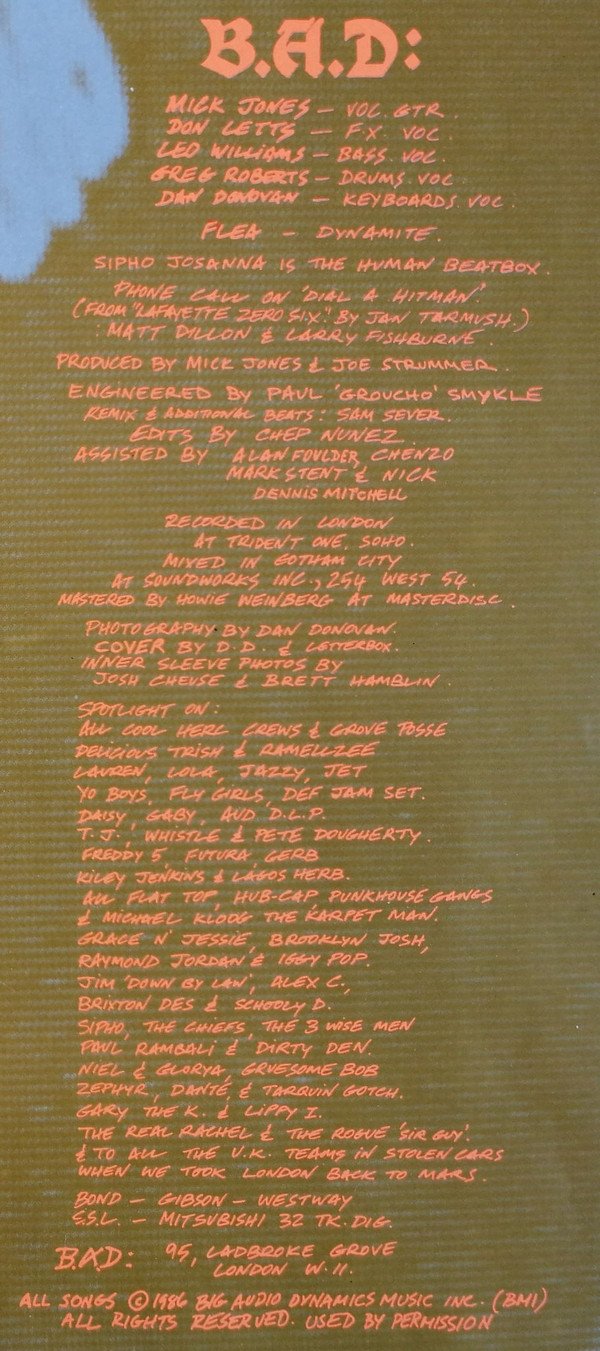 B.A.D:
MICK JONES – VOC. GTR.
DON LETTS – F.X. VOC.
LEO WILLIAMS – BASS. VOC.
GREG ROBERTS – DRUMS. VOC.
DAN DONOVAN – KEYBOARDS. VOC.
FLEA – DYNAMITE.
SIPHO JOSANNA IS THE HUMAN BEATBOX.
PHONE CALL ON 'DIAL A HITMAN.'
(FROM "LAFAYETTE ZERO SIX." BY JAN TARMUSH.)
: MATT DILLON & LARRY FISHBURNE.
PRODUCED BY MICK JONES & JOE STRUMMER.
ENGINEERED BY PAUL 'GROUCHO' SMYKLE
REMIX & ADDITIONAL BEATS: SAM SEVER.
EDITS BY CHEP NUNEZ.
ASSISTED BY ALAN FOULDER, CHENZO
MARK STENT & NICK
DENNIS MITCHELL
RECORDED IN LONDON
AT TRIDENT ONE, SOHO.
MIXED IN GOTHAM CITY
AT SOUNDWORKS INC., 254 WEST 54.
MASTERED BY HOWIE WEINBERG AT MASTERDISC.
PHOTOGRAPHY BY DAN DONOVAN.
COVER BY D.D. & LETTERBOX.
INNER SLEEVE PHOTOS BY
JOSH CHEUSE & BRETT HAMBLIN.
SPOTLIGHT ON:
ALL COOL HERC CREWS & GROVE POSSE
DELICIOUS TRISH & RAMELLZEE
LAUREN, LOLA, JAZZY, JET
YO BOYS, FLY GIRLS, DEF JAM SET.
DAISY, GABY, AUD D.L.P.
T.J., WHISTLE & PETE DOUGHERTY.
FREDDY 5, FUTURA, GERB
KILEY JENKINS & LAGOS HERB.
ALL FLAT TOP, HUB-CAP, PUNKHOUSE GANGS
& MICHAEL KLOOG THE KARPET MAN.
GRACE N' JESSIE, BROOKLYN JOSH,
RAYMOND JORDAN & IGGY POP.
JIM 'DOWN BY LAW', ALEX C.,
BRIXTON DES & SCHOOLY D.
SIPHO, THE CHIEFS, THE 3 WISE MEN
PAUL RAMBALI & DIRTY DEN.
NIEL & GLORYA, GRUESOME BOB
ZEPHYR, DANTÉ & TARQUIN GOTCH.
GARY THE K. & LIPPY I.
THE REAL RACHEL & THE ROGUE 'SIR GUY'.
& TO ALL THE U.K. TEAMS IN STOLEN CARS
WHEN WE TOOK LONDON BACK TO MARS.
BOND – GIBSON – WESTWAY
S.S.L. – MITSUBISHI 32 TK. DIG.
B.A.D: 95, LADBROKE GROVE
LONDON W.11.
ALL SONGS © 1986 BIG AUDIO DYNAMICS MUSIC INC. (BMI)
ALL RIGHTS RESERVED. USED BY PERMISSION